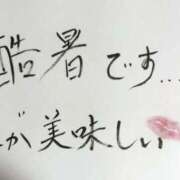 酷暑です...
が美味しい